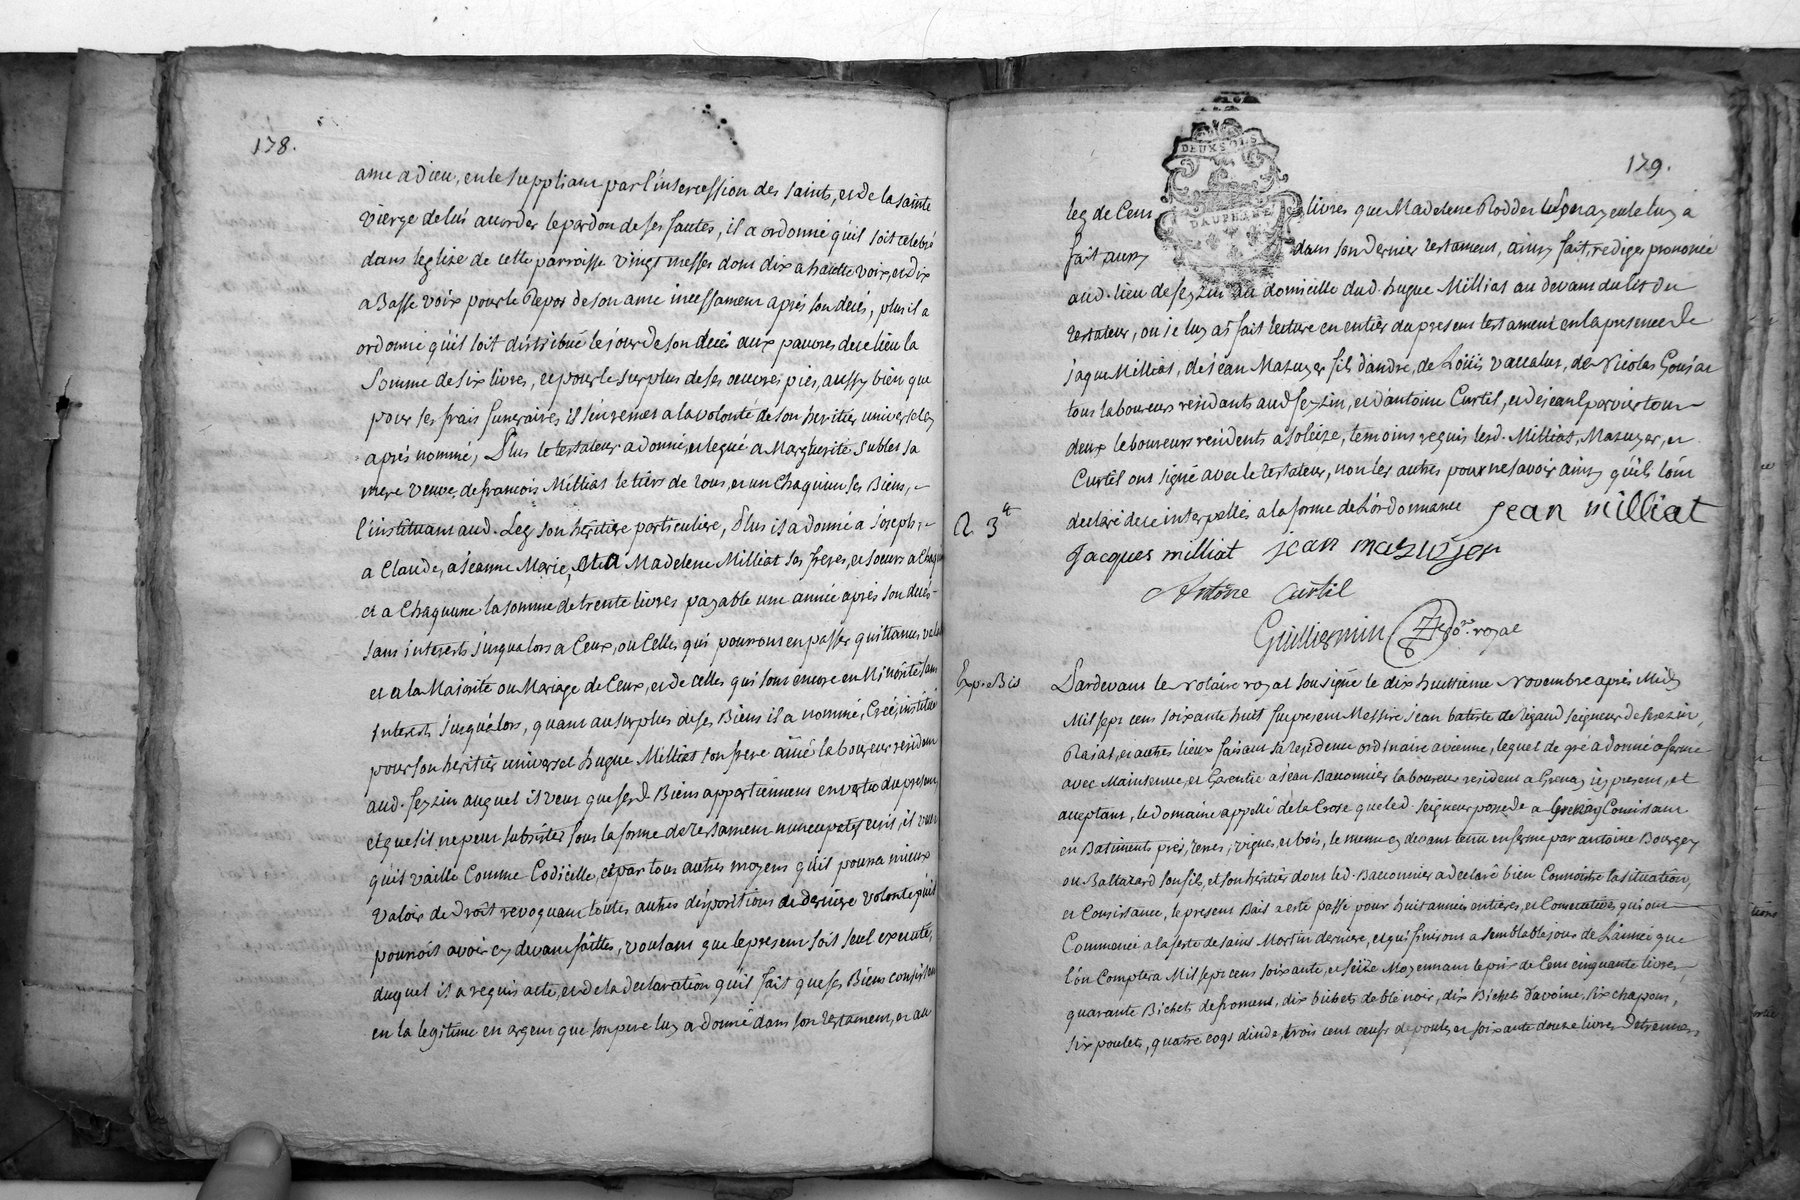 178.
ame a dieu, en le suppliant par l'intercession des saints, et de la sainte
vierge de lui acorder le pardon de ses fautes, il a ordonné qu'il soit celebré
dans leglize de cette parroisse vingt messes dont dix a haute voix, et dix
a Basse voix pour le Repos de son ame incessament aprés son decés, plus il a
ordonné qu'il soit distribué le jour de son decés aux pauvres de ce lieu la
Somme de six livres, et pour le surplus de ses oeuvres pies, aussy bien que
pour ses frais funeraires il s'en remet a la volonté de son heritier universel cy
aprés nommé, Plus le testateur a donné, et legué a Marguerite Sublet sa
mere veuve de francois Milliat le tiers de tous, et un chaquun ses Biens,
l'instituant aud. Leg son héritiere particuliere, Plus il a donné a joseph,
a Claude, a jeanne Marie, et a Madelene Milliat ses freres, et soeurs a chaqun
et a Chaquune la somme de trente livres payable une année aprés son decés
sans interests jusqualors a Ceux, ou Celles qui pourront en passer quittance
et a la Majorité ou Mariage de Ceux, et de celles qui sont encore en Minorité sans
interests jusqu'alors, quant au surplus de ses Biens il a nommé, Créé, institué
pour son heritier universel hugue Milliat son frere ainé laboureur resident
aud. seyzin auquel il veut que sesd. Biens appartiennent en vertu du present,
et que s'il ne peut subsister sous la forme de testament nuncupatif ecrit, il veut
qu'il vaille Comme Codicille, et par tous autres moyens qu'il pourra mieux
valoir de droit revoquant toutes autres dispositions de derniere volonté qu'il
pourroit avoir cy devant faittes, voulant que le present soit seul executé,
duquel il a requis acte, et de la declaration qu'il fait que ses Biens consistent
en la legitime en argent que son pere luy a donné dans son testament, et au
179.
DEUX SOLS
DAUPHINÉ
leg de Cent livres que Madelene Rodder luy a
fait aussy dans son dernier testament, ainsy fait, rediger prononcé
aud. lieu de seyzin au domicille dud. hugue Milliat au devant du lit du
testateur, ou je luy ai fait lecture en entier du present testament en la presence de
jaque Milliat, de jean Mazuyer fils d'andré, de Loüis vaccalut, de Nicolas Goujat
tous laboureurs résidants aud. seyzin, et d'antoine Curtil, et de jean parvier tous
deux laboureurs residents a soleize, temoins requis lesd. Milliat, Mazuyer, et
Curtil ont signé avec le testateur, non les autres pour ne savoir ainsy qu'ils l'ont
declaré de ce interpellés a la forme de L'ordonnance jean milliat
Jacques milliat jean mazuyer
Antoine Curtil
Guilliermin no.re royal
R. 3 tt
Exp. Bis
Pardevant le Notaire royal soussigné le dix huittieme Novembre aprés Midy
Mil sept cent soixante huit fut present Messire jean batiste de Rigaud seigneur de serezin,
Rajat, et autres lieux faisant sa residence ordinaire a vienne, lequel de gré a donné a ferme
avec Maintenue, et Garentie a jean Bauonnier laboureur resident a Grenay icy present, et
acceptant, le domaine appellé de la Croze que led. seigneur possede a Grenay Consistant
en Batiments prés, terres, vignes, et bois, le meme cy devant tenu en ferme par antoine Bourgey
ou Baltazard son fils, et son héritier dont led. Bauonnier a declaré bien Connoitre la situation,
et Consistance, le present Bail a été passé pour huit années entieres, et Consecutives qui ont
Commencé a la feste de saint Martin derniere, et qui finiront a semblable jour de L'année que
l'on Comptera Mil sept cent soixante, et seize Moyennant le prix de Cent cinquante livres,
quarante Bichets de froment, dix bichets de blé noir, dix Bichets d'avoine, six chapons,
six poulets, quatre cogs dinde, trois cent oeufs de poule, et soixante douze livres d'etrennes,